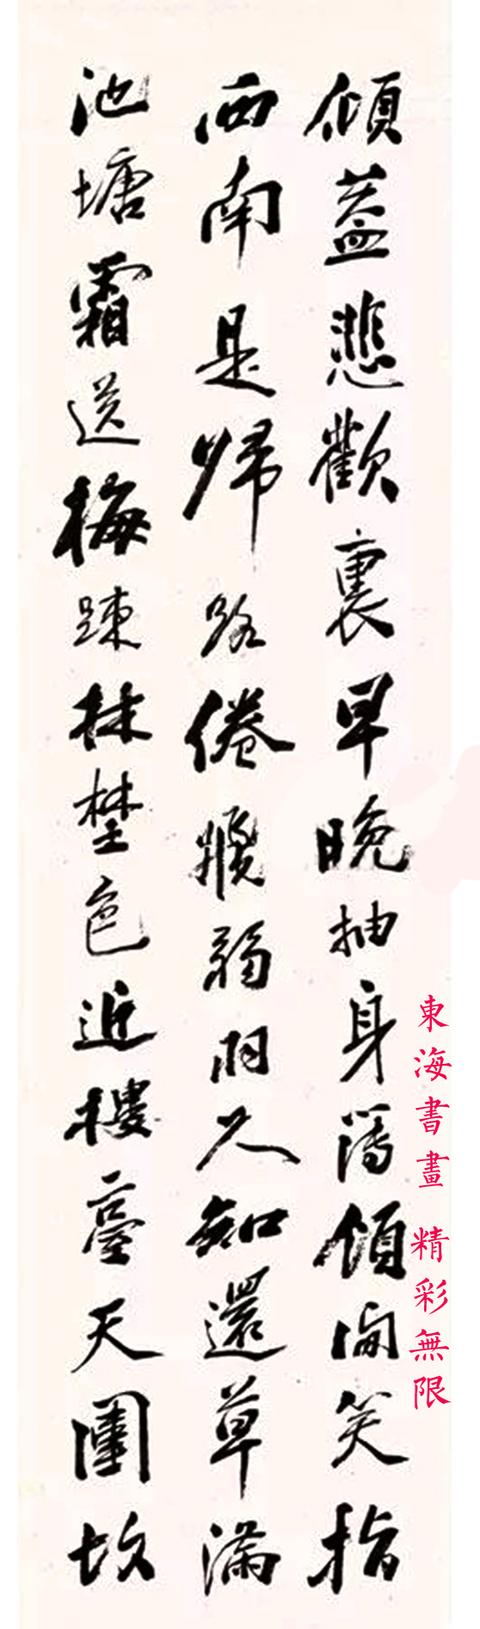 東海書畫 精彩無限
傾蓋悲歡裏早晚抽身簿領間笑指
西南是歸路倦飛弱羽久知還草滿
池塘霜送梅疎林埜色近樓臺天圍故